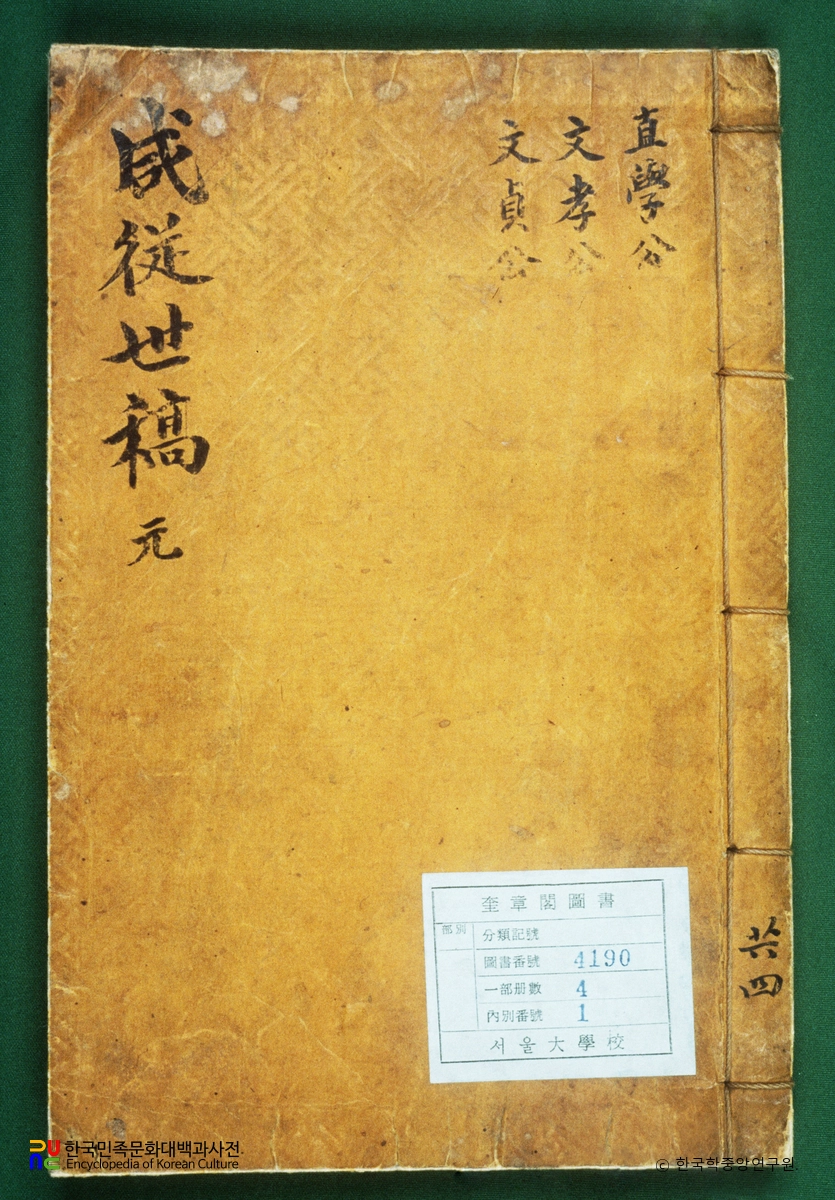 直學公
文孝公
文貞公
咸從世稿 元
共四
奎章閣圖書
部別
分類記號
圖書番號 4190
一部册數 4
內別番號 1
서울大學校
한국민족문화대백과사전
Encyclopedia of Korean Culture
© 한국학중앙연구원